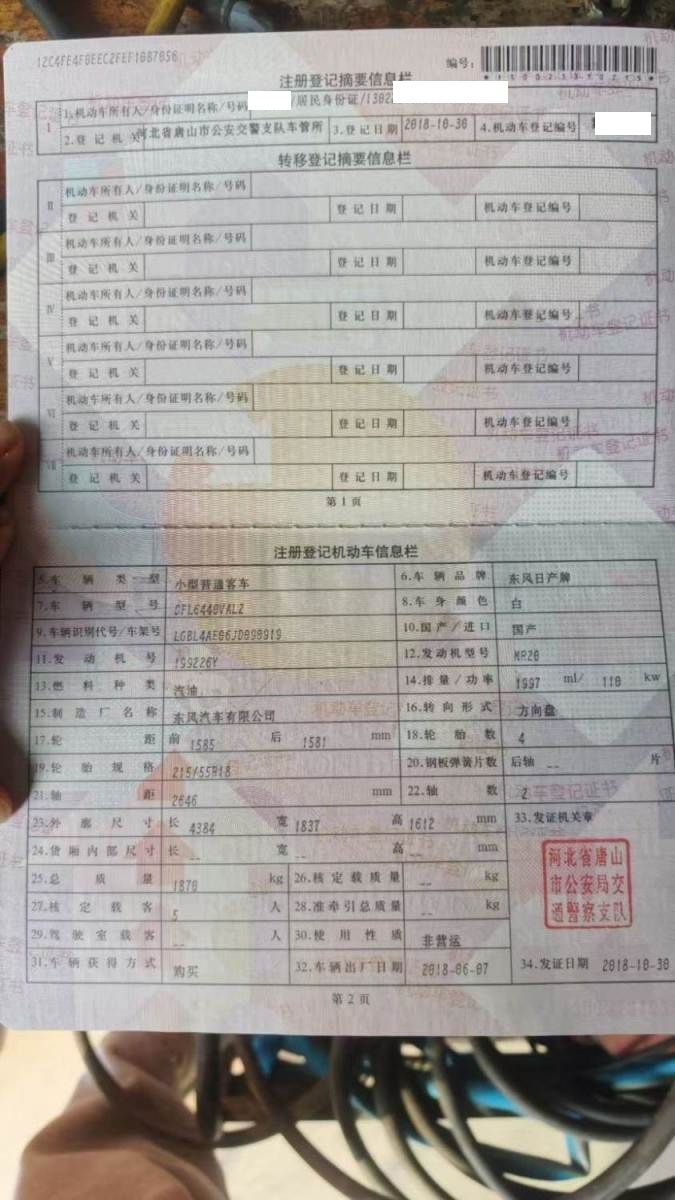 12C4FE4F0EEC2FEF1087656
编号：
注册登记摘要信息栏
I 1.机动车所有人/身份证明名称/号码 /居民身份证/1302
2.登记机关 河北省唐山市公安交警支队车管所 3.登记日期 2018-10-30 4.机动车登记编号
转移登记摘要信息栏
II 机动车所有人/身份证明名称/号码
登记机关 登记日期 机动车登记编号
III 机动车所有人/身份证明名称/号码
登记机关 登记日期 机动车登记编号
IV 机动车所有人/身份证明名称/号码
登记机关 登记日期 机动车登记编号
V 机动车所有人/身份证明名称/号码
登记机关 登记日期 机动车登记编号
VI 机动车所有人/身份证明名称/号码
登记机关 登记日期 机动车登记编号
VII 机动车所有人/身份证明名称/号码
登记机关 登记日期 机动车登记编号
第1页
注册登记机动车信息栏
5.车辆类型 小型普通客车 6.车辆品牌 东风日产牌
7.车辆型号 DFL6440VALZ 8.车身颜色 白
9.车辆识别代号/车架号 10.国产/进口 国产
11.发动机号 199226Y 12.发动机型号 MR20
13.燃料种类 汽油 14.排量/功率 1997 ml/ 110 kw
15.制造厂名称 东风汽车有限公司 16.转向形式 方向盘
17.轮距 前 1585 后 1581 mm 18.轮胎数 4
19.轮胎规格 215/55R18 20.钢板弹簧片数 后轴 -- 片
21.轴距 2646 mm 22.轴数 2
23.外廓尺寸 长 4384 宽 1837 高 1612 mm 33.发证机关章
24.货厢内部尺寸 长 -- 宽 -- 高 -- mm
25.总质量 1870 kg 26.核定载质量 -- kg
27.核定载客 5 人 28.准牵引总质量 -- kg
29.驾驶室载客 -- 人 30.使用性质 非营运
31.车辆获得方式 购买 32.车辆出厂日期 2018-06-07 34.发证日期 2018-10-30
河北省唐山
市公安局交
通警察支队
第2页